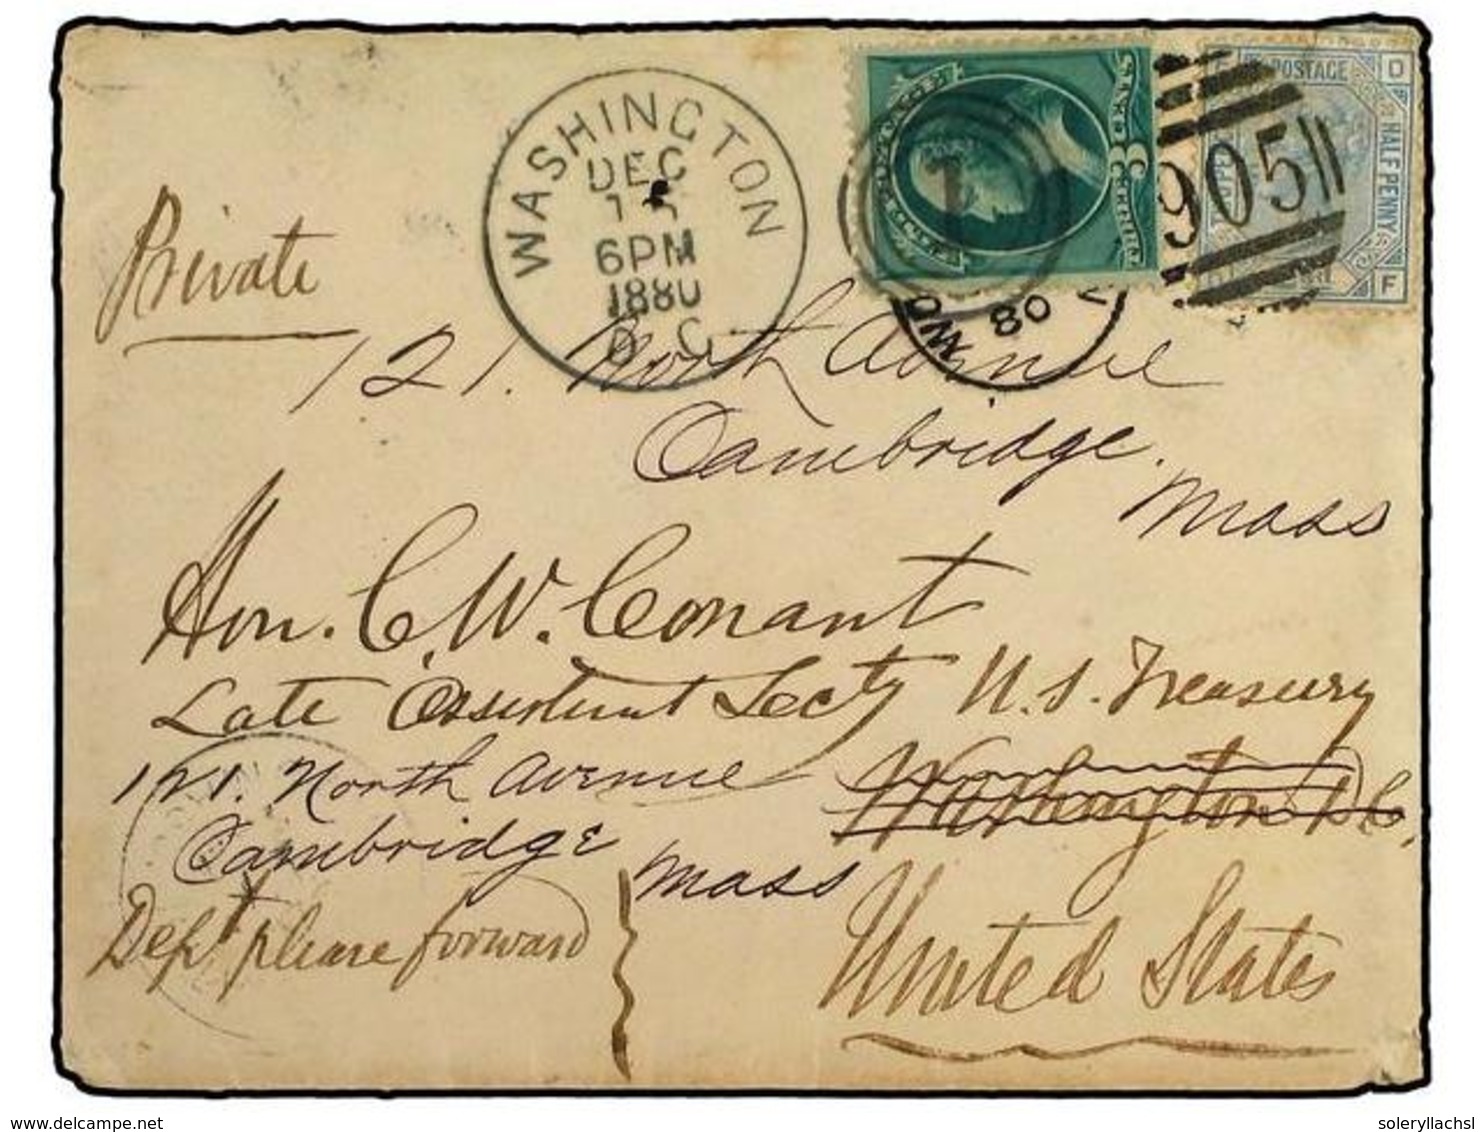 WASHINGTON
DEC
6PM
1880
D.C.
1
80
905
POSTAGE
HALFPENNY
D
F
Private
121. North Avenue
Cambridge.
Mass
Hon. C. W. Conant
Late Assistant Secty U.S. Treasury
121. North Avenue Washington D.C.
Cambridge Mass
Dept please forward
United States
www.delcampe.net
soleryllachsl